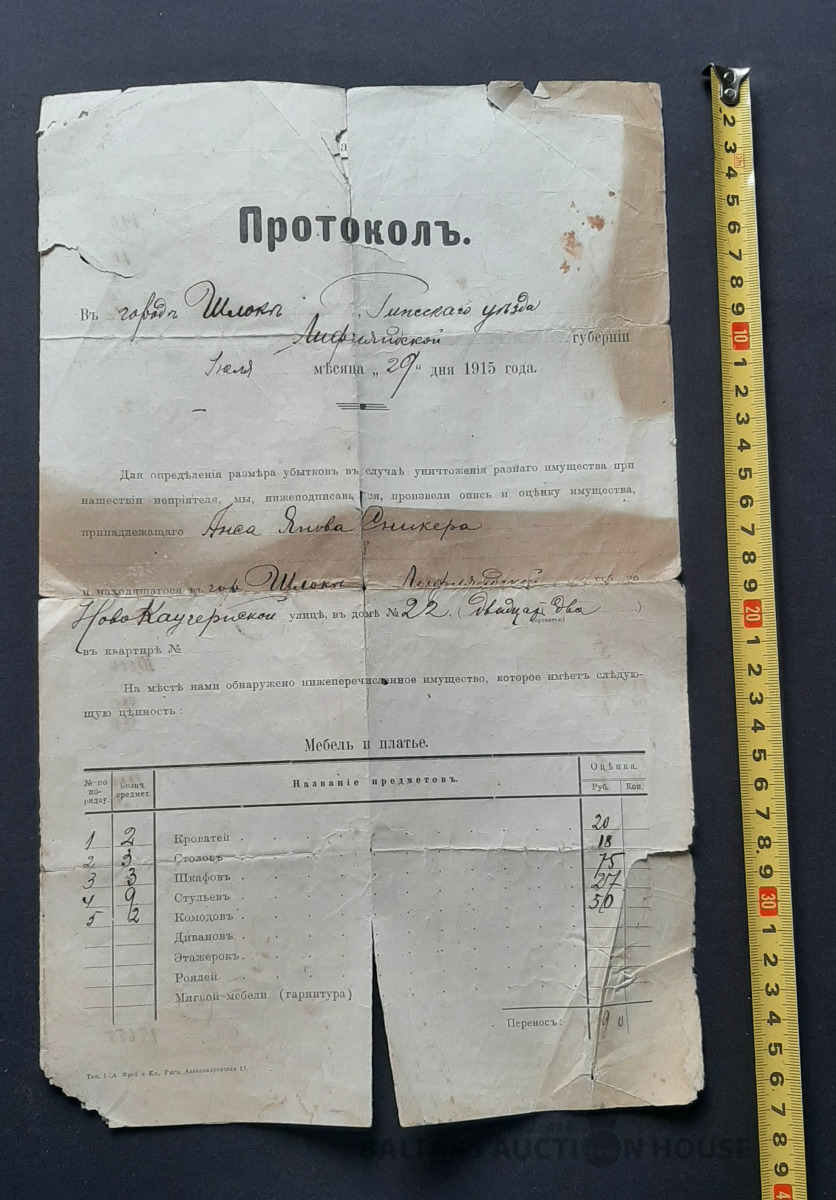 Протоколъ.
Въ городѣ Шлокѣ Рижскаго уѣзда
Лифляндской губерніи
Іюля мѣсяца „29“ дня 1915 года.
Для опредѣленія размѣра убытковъ въ случаѣ уничтоженія разнаго имущества при
нашествіи непріятеля, мы, нижеподписавшіяся, произвели опись и оцѣнку имущества,
принадлежащаго Анса Янова Сникера
и находящагося въ гор Шлокѣ Лифляндской губ. по
Ново Каугернской улицѣ, въ домѣ № 22 (двадцать два)
(прописью)
въ квартирѣ №
На мѣстѣ нами обнаружено нижеперечисленное имущество, которое имѣетъ слѣдую-
щую цѣнность:
Мебель и платье.
№ по порядку. Колич. предмет. Названіе предметовъ. Оцѣнка.
Руб. Коп.
1 2 Кроватей 20
2 3 Столовъ 18
3 3 Шкафовъ 75
4 9 Стульевъ 27
5 2 Комодовъ 50
Дивановъ
Этажерокъ
Роялей
Мягкой мебели (гарнитура)
Переносъ: 190
Тип. І. А. Фрей и Ко., Рига, Александровская
2 3 4 5 6 7 8 9 10 1 2 3 4 5 6 7 8 9 20 1 2 3 4 5 6 7 8 9 30 1 2 3 4 5 6 7 8 9
BALTARS AUCTION HOUSE